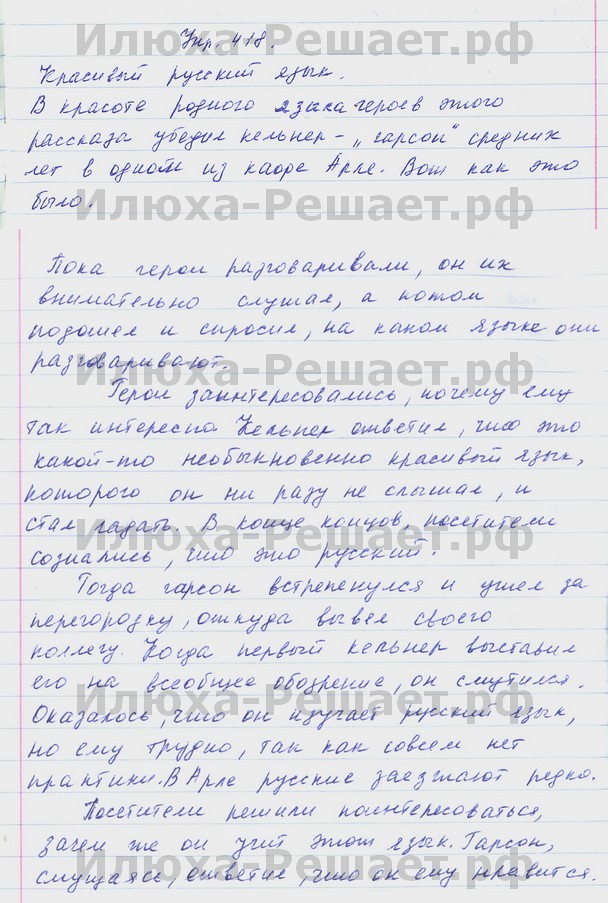 Упр. 418.
Красивый русский язык.
В красоте родного языка героев этого
рассказа убедил кельнер - „гарсон“ средних
лет в одном из кафе Арле. Вот как это
было.
Пока герои разговаривали, он их
внимательно слушал, а потом
подошел и спросил, на каком языке они
разговаривают.
Герои заинтересовались, почему ему
так интересно. Кельнер ответил, что это
какой-то необыкновенно красивый язык,
которого он ни разу не слышал, и
стал гадать. В конце концов, посетители
сознались, что это русский.
Тогда гарсон встрепенулся и ушел за
перегородку, откуда вывел своего
коллегу. Когда первый кельнер выставил
его на всеобщее обозрение, он смутился.
Оказалось, что он изучает русский язык,
но ему трудно, так как совсем нет
практики. В Арле русские заезжают редко.
Посетители решили поинтересоваться,
зачем же он учит этот язык. Гарсон,
смущаясь, ответил, что он ему нравится.
Илюха-Решает.рф
Илюха-Решает.рф
Илюха-Решает.рф
Илюха-Решает.рф
Илюха-Решает.рф
Илюха-Решает.рф
Илюха-Решает.рф